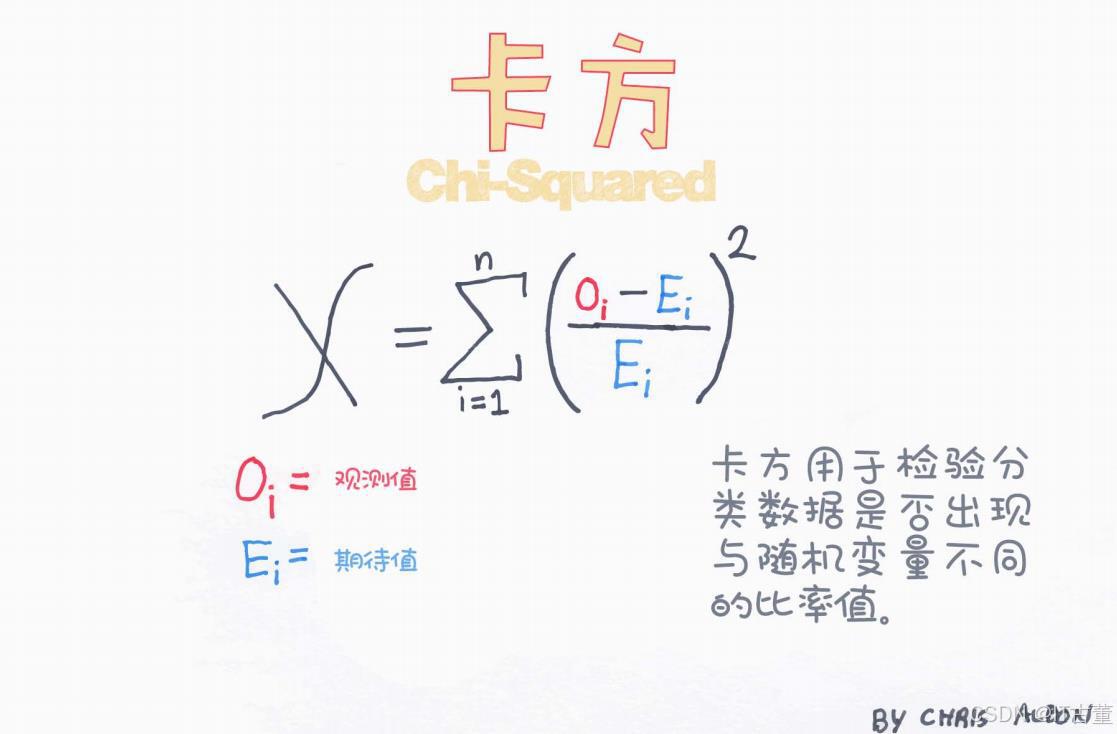 卡方
Chi-Squared
X = \sum_{i=1}^{n} \left( \frac{O_i - E_i}{E_i} \right)^2
O_i = 观测值
E_i = 期待值
卡方用于检验分
类数据是否出现
与随机变量不同
的比率值。
BY CHRIS